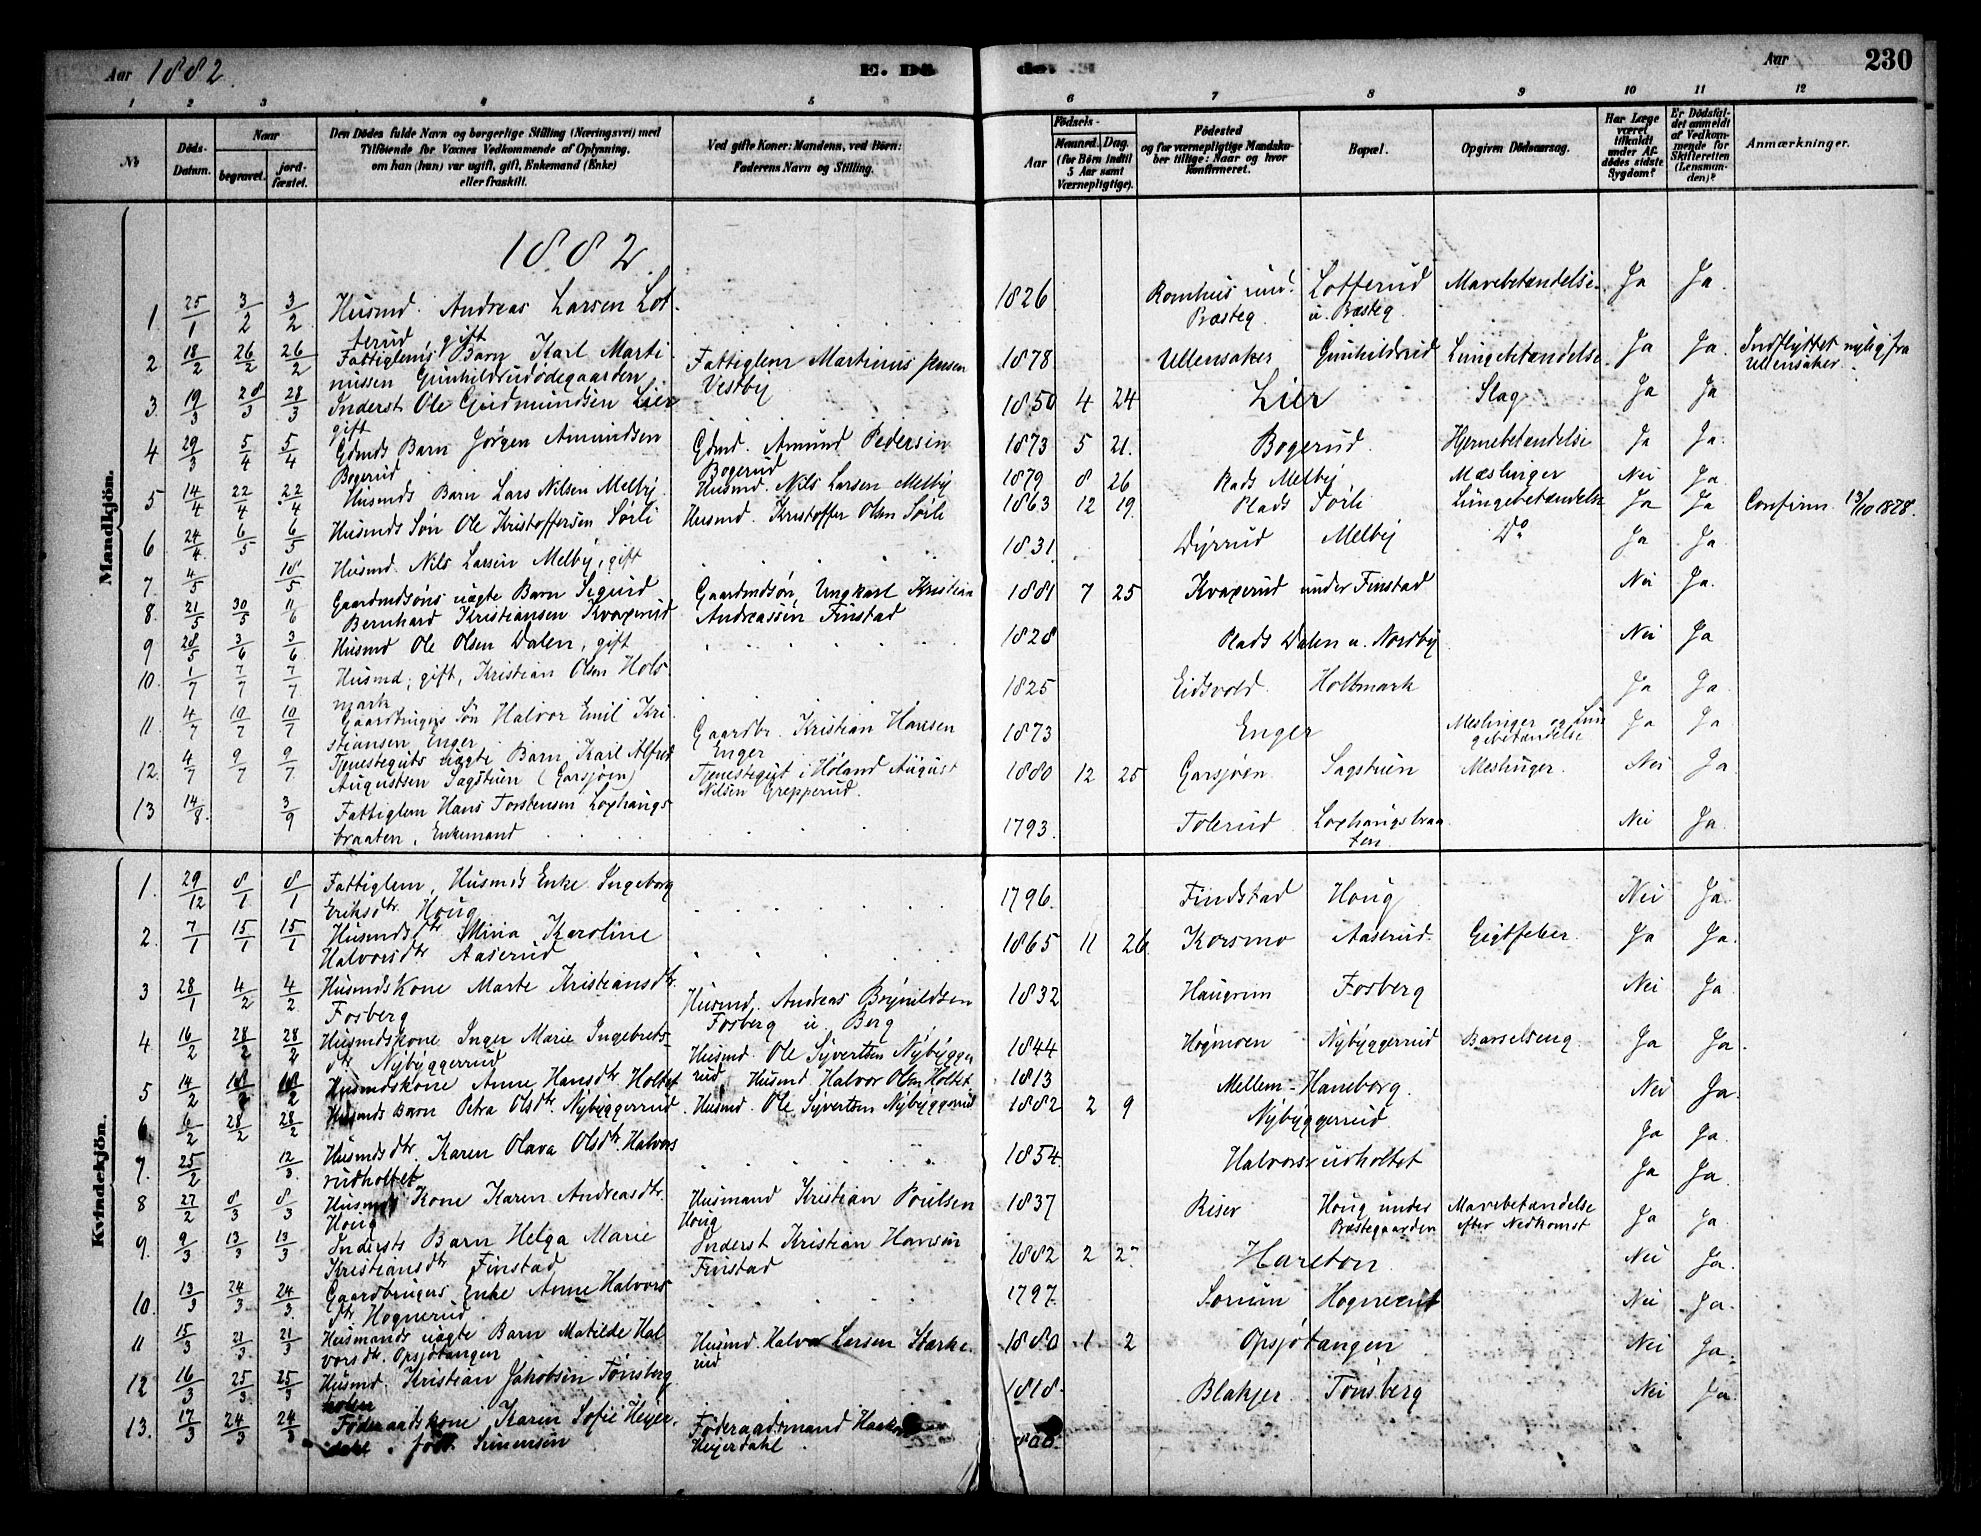 Aar 1882.
E. Dö
de. E
Aar
230
1 2 3 4 5 6 7 8 9 10 11 12
No
Döds-Datum.
Naar
begravet.
jordfæstet.
Den Dödes fulde Navn og borgerlige Stilling (Næringsvei) med
Tilföiende for Voxnes Vedkommende af Oplysning,
om han (hun) var ugift, gift, Enkemand (Enke)
eller fraskilt.
Ved gifte Koner: Mandens, ved Börn:
Faderens Navn og Stilling.
Födsels-
Aar
Maaned. Dag.
(for Börn indtil
5 Aar samt
Værnepligtige).
Födested
og for værnepligtige Mandskaber tillige: Naar og hvor
Konfirmeret.
Bopæl.
Opgiven Dödsaarsag.
Har Læge
været
tilkaldt
under Afdödes sidste
Sygdom?
Er Dödsfaldet anmeldt
af Vedkommende for
Skifteretten
(Lensmanden)?
Anmærkninger.
Mandkjön.
1882.
1. 25/1 3/2 3/2 Husmd. Andreas Larsen Lotterud gift 1826 Romhus und. Præsteg. Lotterud u. Præsteg. Mavebetændelse Ja Ja.
2 18/2 26/2 26/2 Fattiglem's Barn Karl Martinussen Gunhildrudødegaarden Fattiglem Martinus Jensen Vestby 1878 Ullensaker Gunhildrud Lungebetændelse Ja Ja. Indflyttet nylig fra Ullensaker.
3. 19/3 28/3 28/3 Inderst Ole Gudmundsen Lier gift 1850 4 24 Lier Slag Ja Ja
4 29/3 5/4 5/4 Gdmds Barn Jørgen Amundsen Bogerud Gdmd. Amund Pedersen Bogerud 1873 5 21. Bogerud. Hjernebetændelse Ja Ja.
5 14/4 22/4 22/4 Husmds Barn Lars Nilsen Melby Husmd. Nils Larsen Melby 1879 8 26 Plads Melby Mæslinger Nei Ja.
6 24/4 6/5 6/5 Husmds Søn Ole Kristoffersen Sørli Husmd. Kristoffer Olsen Sørli 1863 12 19 Plads Sørli Lungebetændelse Ja Ja Confirm. 13/10 1878.
7. 4/5 18/5 Husmd. Nils Larsen Melby, gift 1831 Dyrrud Melby Do Ja Ja.
8. 21/5 30/5 11/6 Gaardmdsøns uægte Barn Sigurd Bernhard Kristiansen Kvaxerud Gaardmdsøn, Ungkarl Kristian Andreassen Finstad 1881 7 25 Kvaxerud under Finstad Nei Ja.
9 28/5 3/6 3/6 Husmd Ole Olsen Dalen, gift 1828 Plads Dalen u. Nordby Nei Ja
10. 1/7 7/7 7/7 Husmd; gift, Kristian Olsen Holsmark 1825 Eidsvold. Holtsmark Ja Ja.
11. 4/7 10/7 10/7 Gaardbrugers Søn Halvor Emil Kristiansen Enger Gaardbr. Kristian Hansen Enger 1873 Enger Meslinger og Lungebetændelse Ja Ja
12. 4/7 9/7 9/7 Tjenesteguts uægte Barn Karl Alfred Augustsen Sagstuen (Garsjøen) Tjenestegut i Høland August Nilsen Grepperud. 1880 12 25 Garsjøen. Sagstuen Meslinger. Nei Ja.
13 14/8. 3/9 Fattiglem Hans Torstensen Loxhaugsbraaten, Enkemand 1793. Tolerud Loxhaugsbraaten Nei Ja.
Kvindekjön.
1. 29/12 8/1 8/1 Fattiglem, Husmds Enke Ingeborg Eriksdtr. Houg 1796. Findstad Houg Nei Ja.
2. 7/1 15/1 15/1 Husmdsdtr. Mina Karoline Halvorsdtr Aaserud 1865 11 26 Korsmo Aaserud. Gigtfeber. Ja Ja.
3 28/1 4/2 4/2 Husmds Kone Marte Kristiansdtr. Fosberg Husmd. Andreas Brynildsen Fosberg u. Berg 1832 Haugrim Fosberg Nei Ja.
4 16/2 28/2 28/2 Husmdskone Inger Marie Ingebretsdtr Nybyggerrud Husmd. Ole Syvertsen Nybyggerrud 1844 Høgmoen Nybyggerrud Barselseng Ja Ja.
5 14/2 18/2 18/2 Husmdskone Anne Hansdtr. Holtet. Husmd Halvor Olsen Holtet. 1813 Mellem-Haneborg. Nei Ja.
6 6/2 28/2 28/2 Husmds Barn Petra Olsdtr. Nybyggerrud. Husmd. Ole Syvertsen Nybyggerrud 1882 2 9 Nybyggerrud. Ja Ja.
7. 25/2 12/3 Husmdsdtr. Karen Olava Olsdtr. Halvorsrudholtet 1854. Halvorsrudholtet Ja Ja.
8 27/2 8/3 8/3 Husmds Kone Karen Andreasdtr. Houg Husmand Kristian Poulsen Houg 1837 Riser Houg under Præstegaarden Mavebetændelse efter Nedkomst Ja Ja.
9. 9/3 13/3 13/3 Indersts Barn Helga Marie Kristiansdtr Finstad Inderst Kristian Hansen Finstad 1882 2 Harston Nei Ja.
10. 13/3 24/3 24/3. Gaardbrugers Enke Anne Halvorsdtr. Hognerud. 1797. Sørum Hognerud Nei Ja.
11 15/3 21/3 21/3 Husmands uægte Barn Matilde Halvorsdtr. Opsjøtangen Husmd. Halvor Larsen Starkerud 1880 1 2 Opsjøtangen Nei Ja.
12 16/3 25/3 25/3 Husmd. Kristian Jakobsen Tønsberg 1818. Blakjer Tønsberg Nei Ja.
13. 17/3 24/3 24/3 Føderaadskone Karen Sofie Heyerdahl. født Simensen Føderaadsmand Heyerdahl